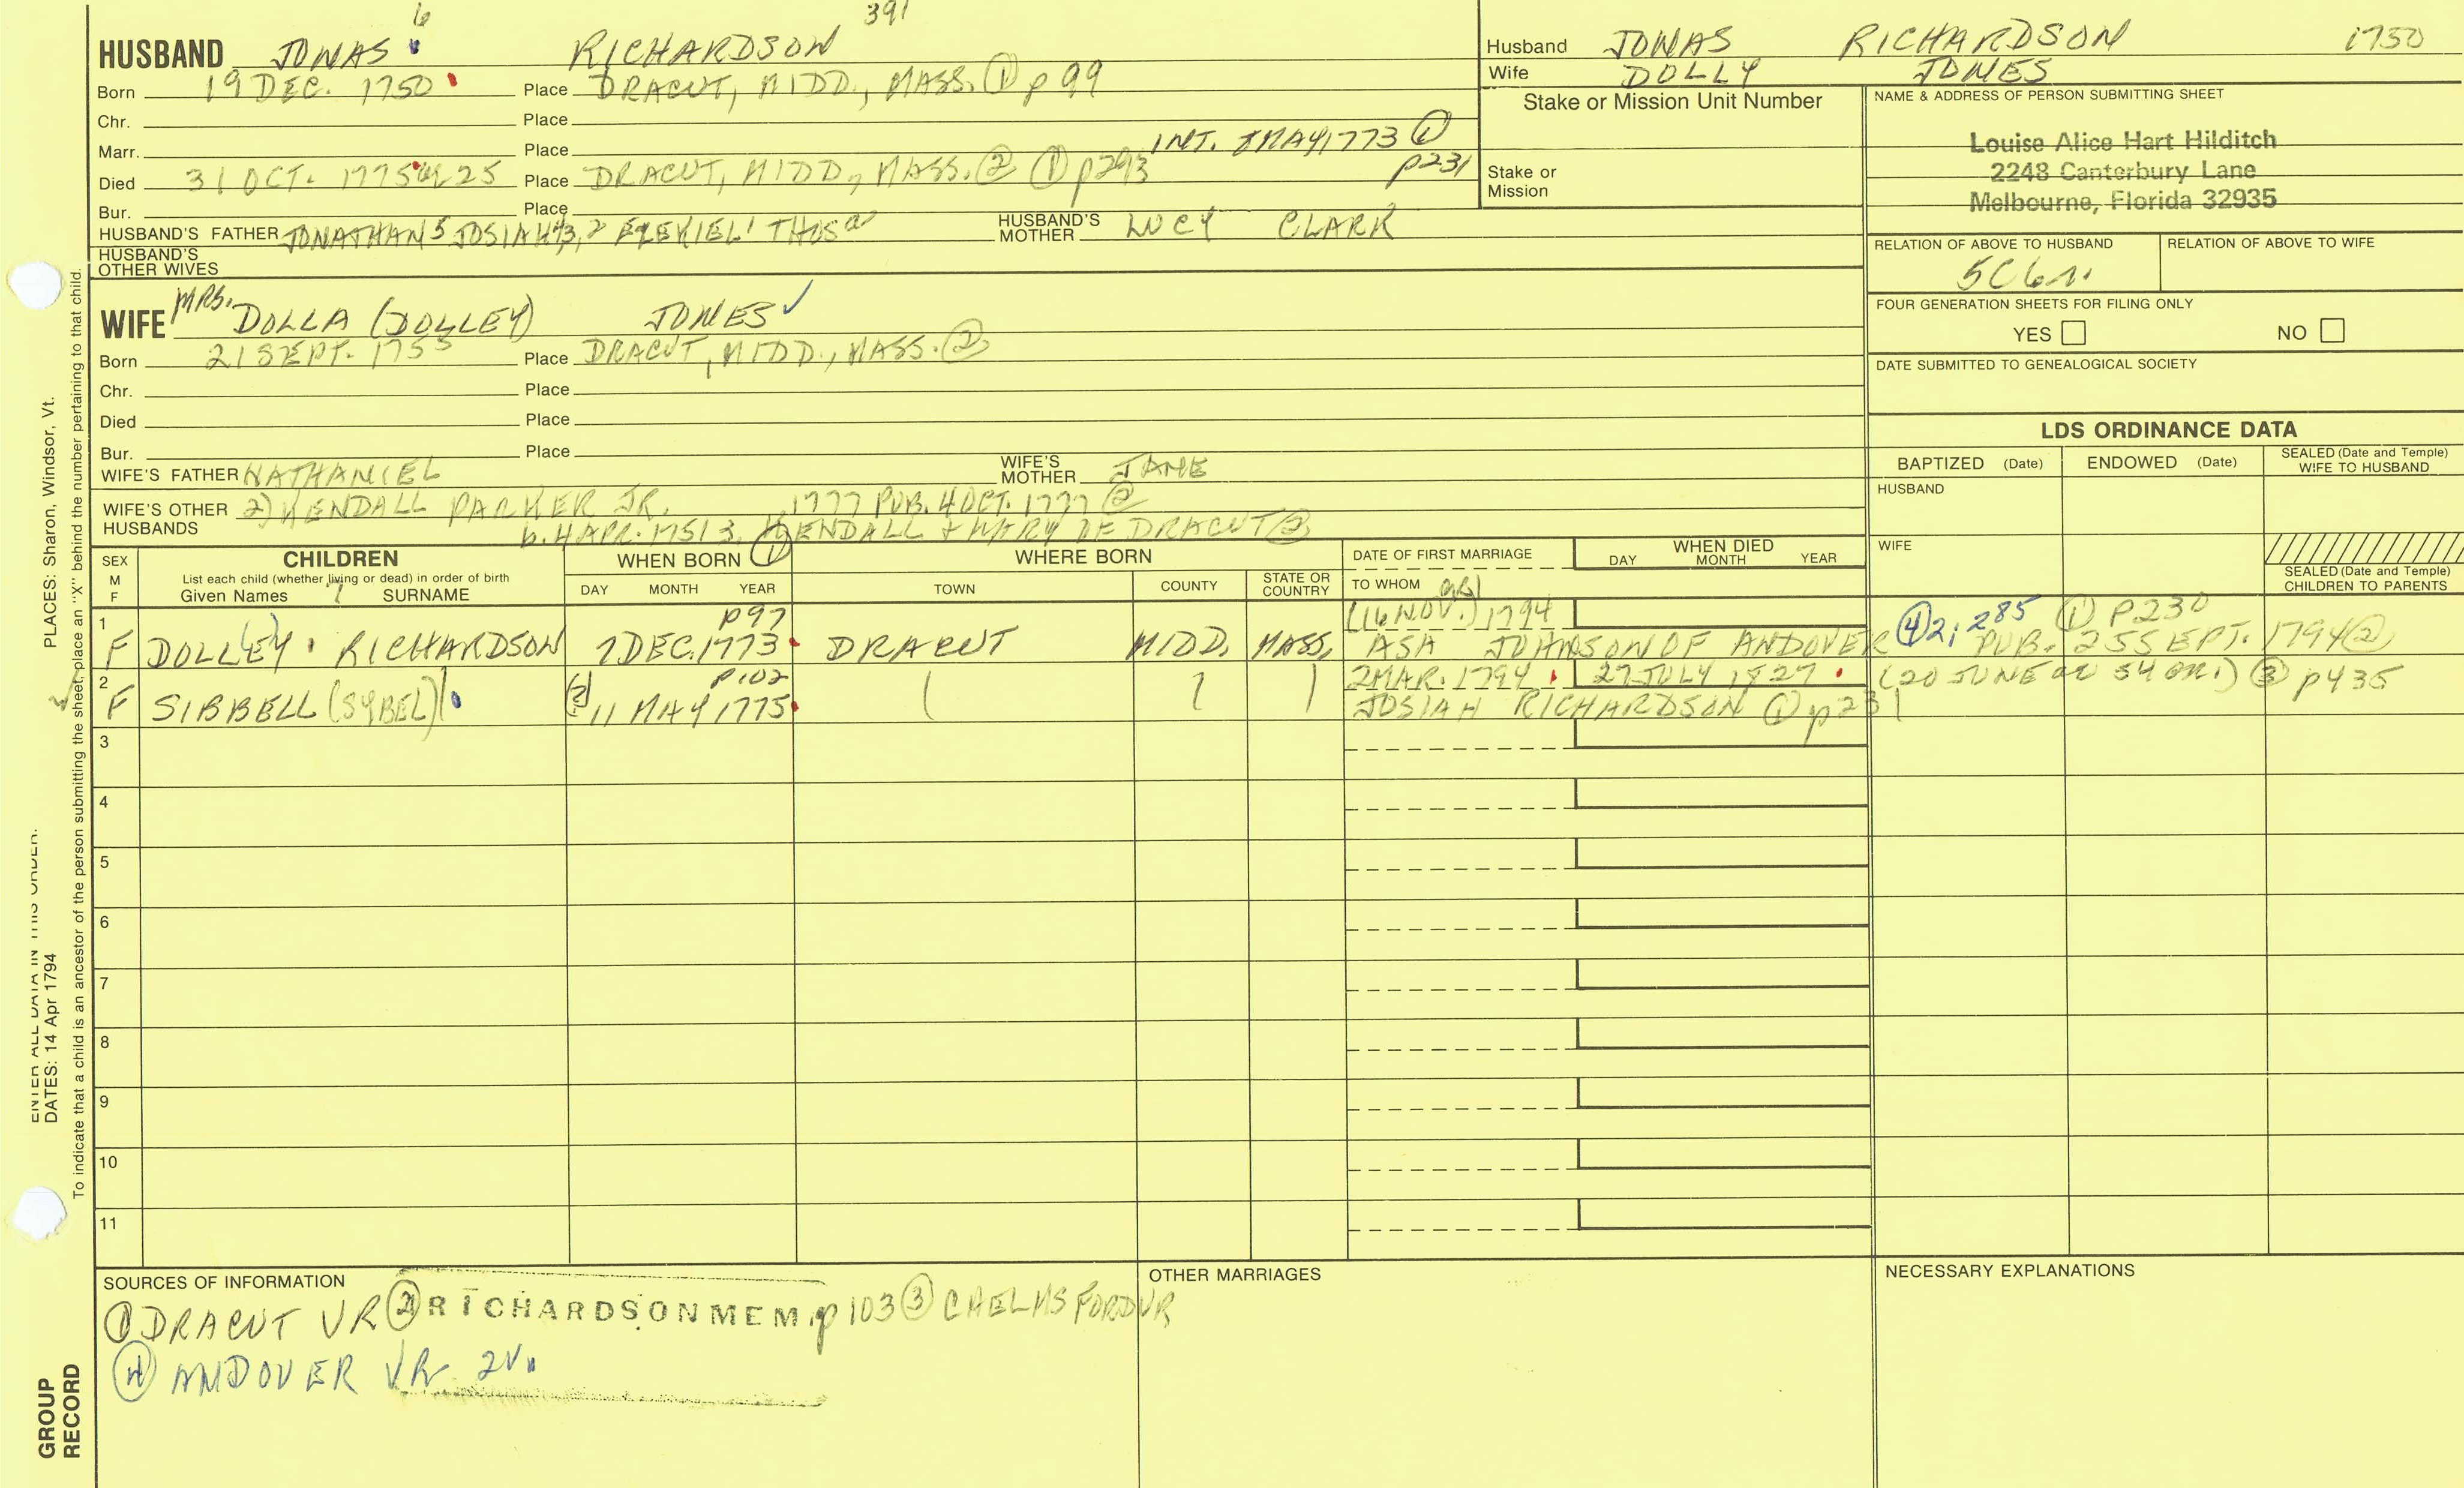 6 391
HUSBAND JONAS RICHARDSON
Born 19 DEC. 1750 Place DRACUT, MIDD., MASS. ① p 99
Chr. Place
Marr. Place INT. MAY 1773 ①
p231
Died 31 OCT. 1775 25 Place DRACUT, MIDD., MASS. ② ① p293
Bur. Place
HUSBAND'S FATHER JONATHAN 5 JOSIAH 4,3,2 EZEKIEL 1 THOS
HUSBAND'S MOTHER LUCY CLARK
HUSBAND'S OTHER WIVES
WIFE MRS. DOLLA (DOLLEY) JONES ✓
Born 21 SEPT. 1755 Place DRACUT, MIDD., MASS. ②
Chr. Place
Died Place
Bur. Place
WIFE'S FATHER NATHANIEL
WIFE'S MOTHER JANE
WIFE'S OTHER HUSBANDS 2) KENDALL PARKER JR. 1777 PUB. 4 OCT. 1777 ②
b. 4 APR. 1751 3. KENDALL + MARY OF DRACUT ②
Husband JONAS RICHARDSON 1750
Wife DOLLY JONES
Stake or Mission Unit Number
Stake or
Mission
NAME & ADDRESS OF PERSON SUBMITTING SHEET
Louise Alice Hart Hilditch
2248 Canterbury Lane
Melbourne, Florida 32935
RELATION OF ABOVE TO HUSBAND RELATION OF ABOVE TO WIFE
5C6r.
FOUR GENERATION SHEETS FOR FILING ONLY
YES NO
DATE SUBMITTED TO GENEALOGICAL SOCIETY
LDS ORDINANCE DATA
BAPTIZED (Date) ENDOWED (Date) SEALED (Date and Temple)
WIFE TO HUSBAND
HUSBAND
WIFE
SEALED (Date and Temple)
CHILDREN TO PARENTS
SEX
M
F
CHILDREN
List each child (whether living or dead) in order of birth
Given Names 7 SURNAME
WHEN BORN ①
DAY MONTH YEAR
WHERE BORN
TOWN COUNTY STATE OR COUNTRY
DATE OF FIRST MARRIAGE
TO WHOM
WHEN DIED
DAY MONTH YEAR
1 p97 (16 NOV.) 1794 ④ 2; 285 ① P230
F DOLL(E)Y RICHARDSON 7 DEC. 1773 DRACUT MIDD. MASS. ASA JOHNSON OF ANDOVER PUB. 25 SEPT. 1794 ②
2 p.102 2 MAR. 1794 27 JULY 1827 (20 JUNE 54 ) ③ p435
F SIBBELL (SYBEL) 11 MAY 1775 JOSIAH RICHARDSON ① p231
3
4
5
6
7
8
9
10
11
SOURCES OF INFORMATION
① DRACUT VR ② RICHARDSON MEM. p 103 ③ CHELMSFORD VR
④ ANDOVER VR 2V.
OTHER MARRIAGES
NECESSARY EXPLANATIONS
PLACES: Sharon, Windsor, Vt.
ENTER ALL DATA IN THIS ORDER:
DATES: 14 Apr 1794
To indicate that a child is an ancestor of the person submitting the sheet, place an "X" behind the number pertaining to that child.
GROUP
RECORD